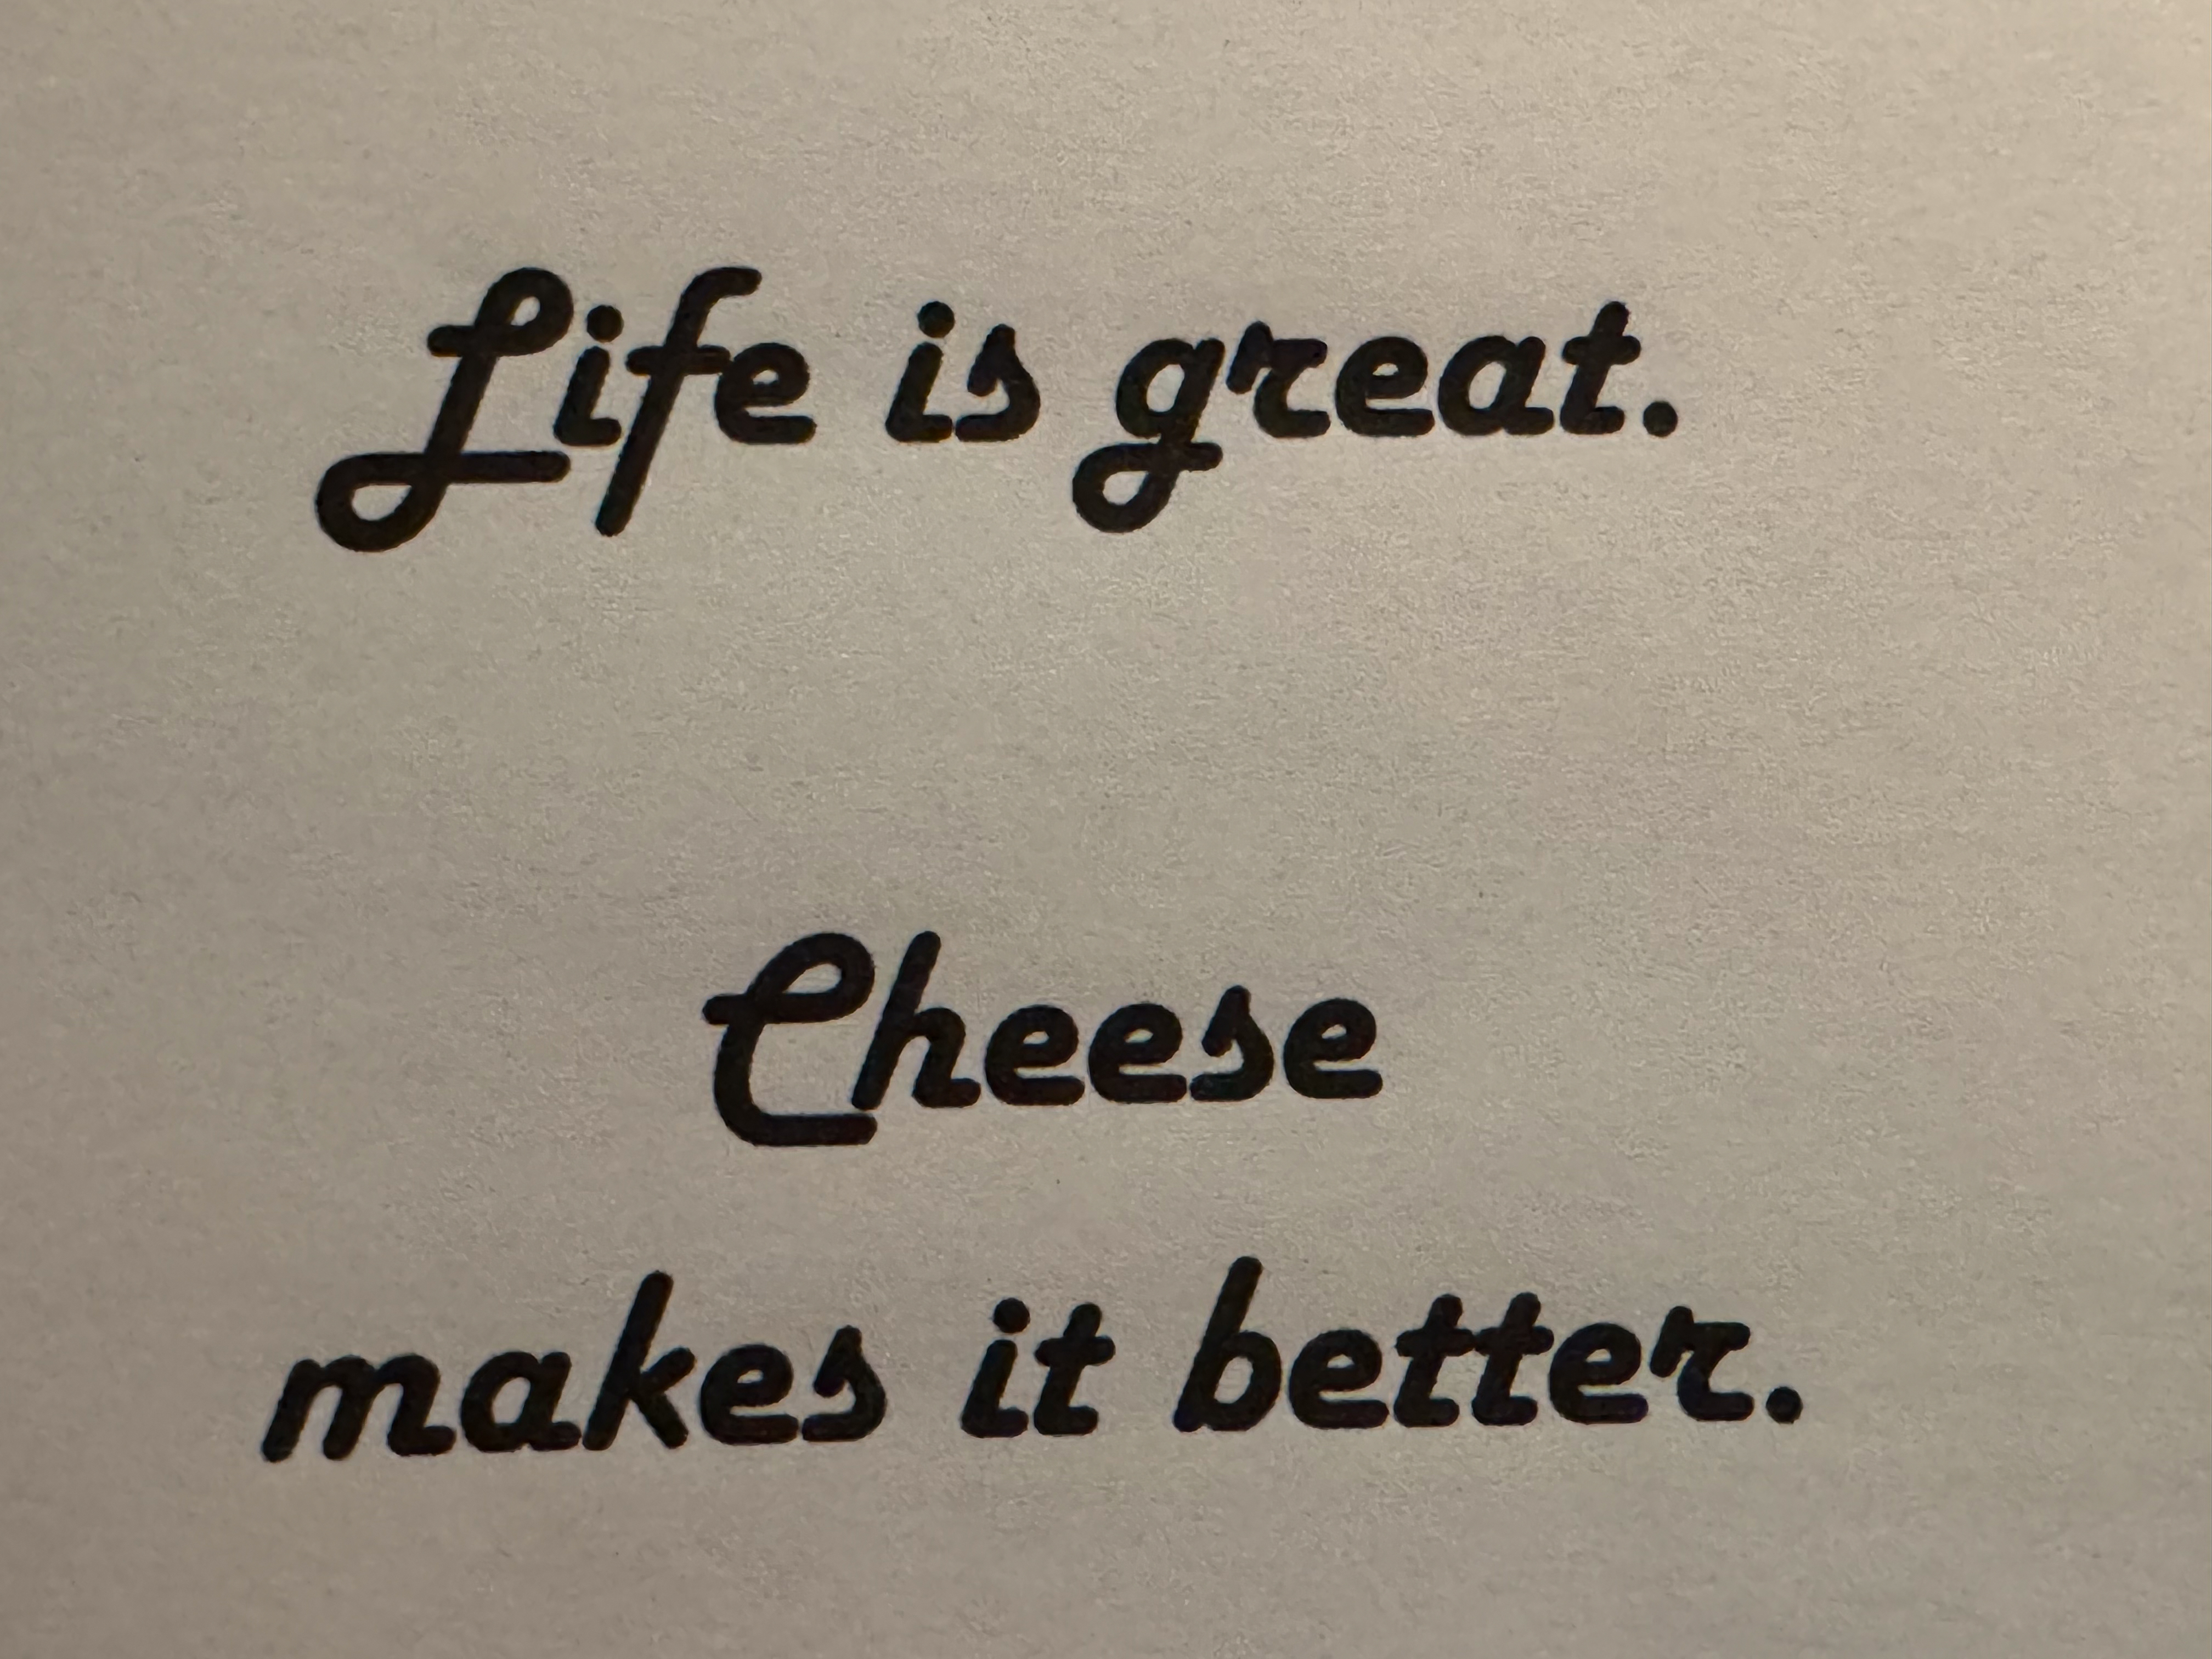 Life is great.
Cheese
makes it better.